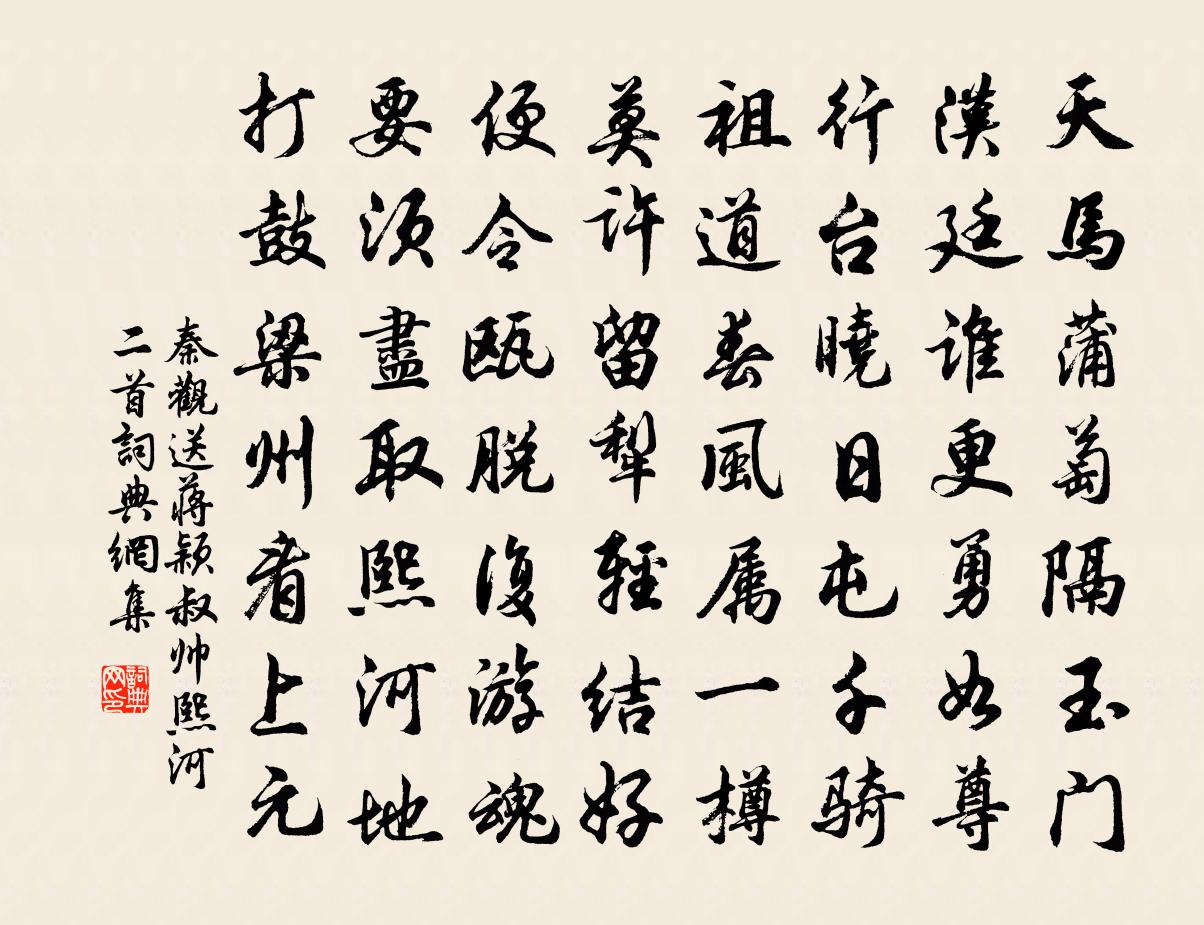 天馬蒲萄隔玉门
漢廷谁更勇如尊
行台曉日屯千骑
祖道春風属一樽
莫许留犂輕结好
便令瓯脱復游魂
要须盡取熙河地
打鼓梁州看上元
秦觀送蒋颖叔帅熙河
二首詞典網集
詞典网印